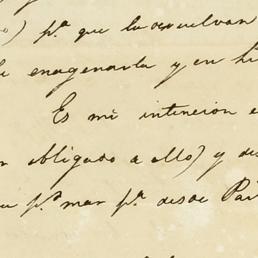 ) p.ª que la devuelvan
enagenarla y en hi
Es mi intencion e
obligado a ello) y des
p.ª mar p.ª desde Par